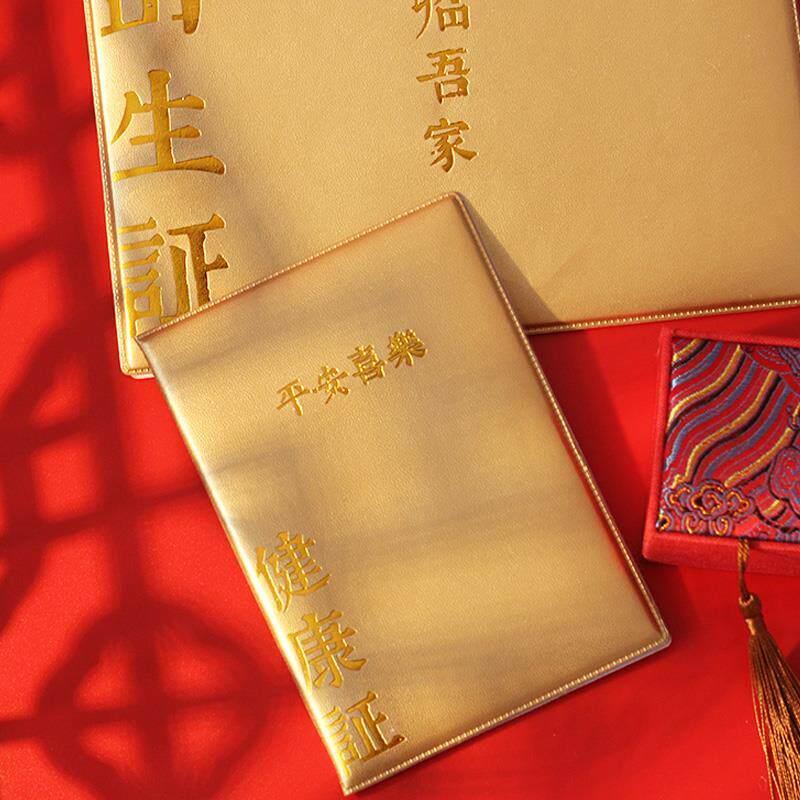 生証
吾家
平安喜樂
健康証